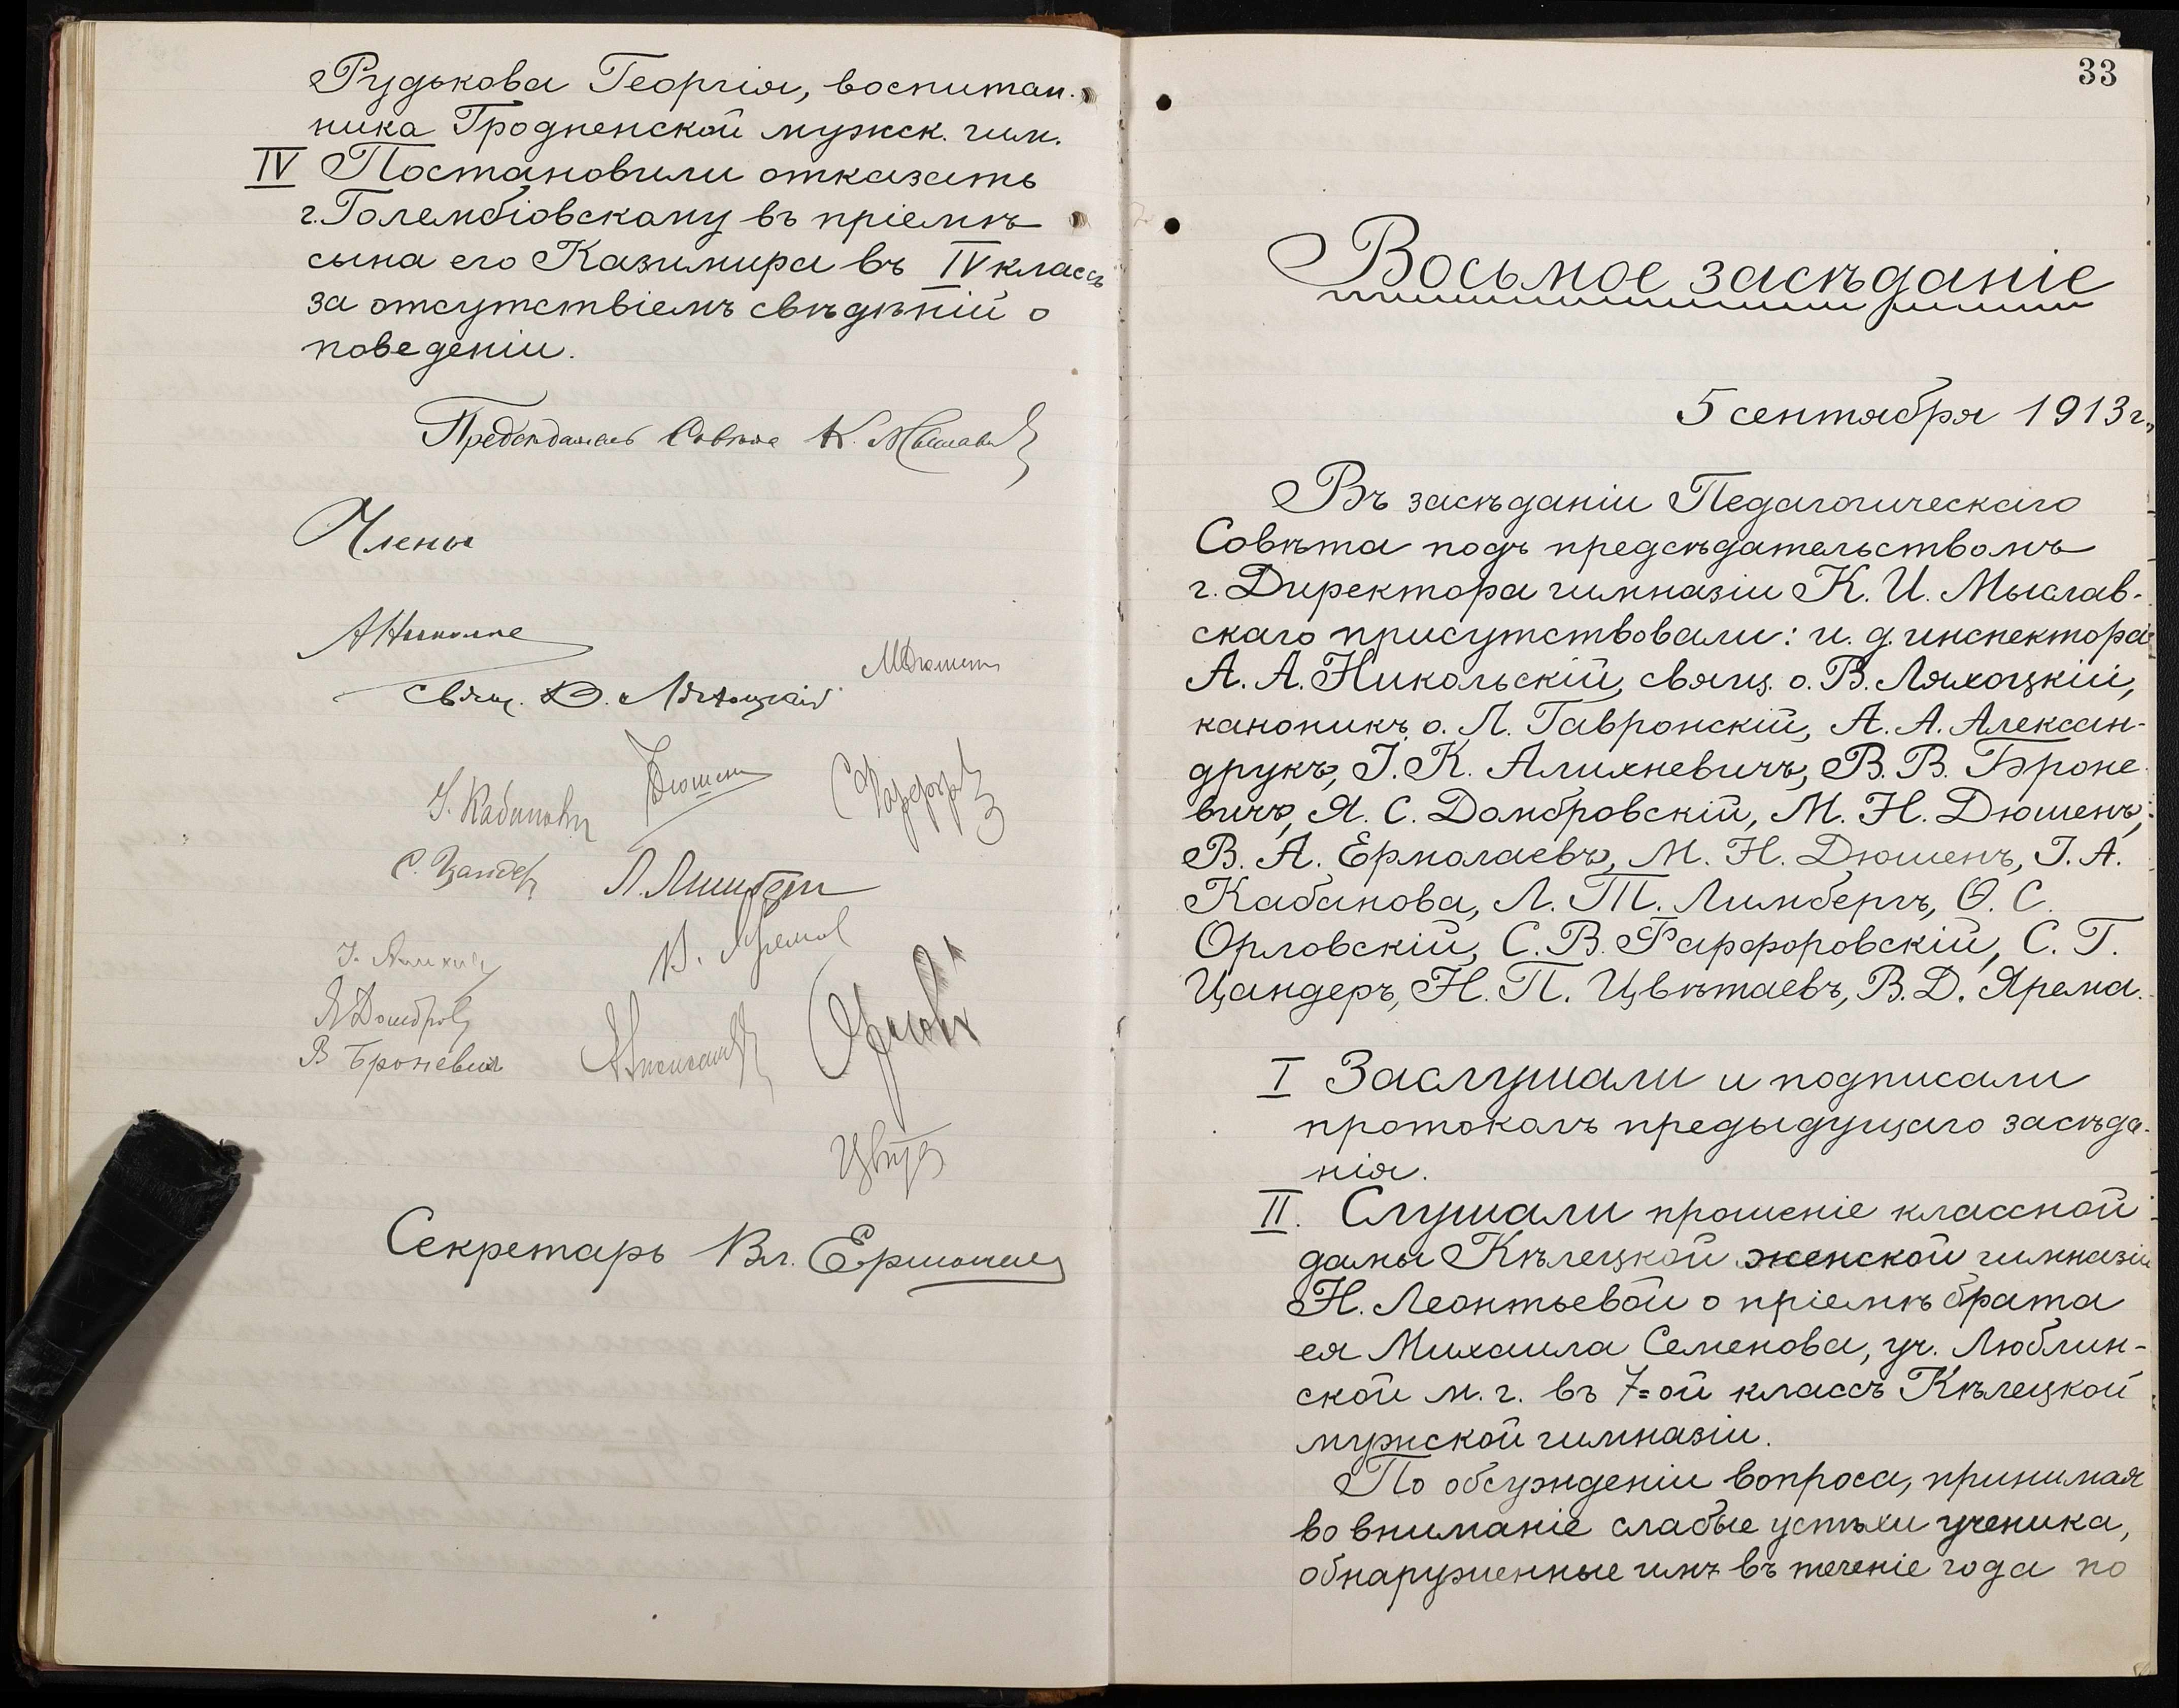 Рудькова Георгія, воспитан-
ника Гродненской мужск. гим.
IV Постановили отказать
г. Голембіовскому въ пріемѣ
сына его Казимира въ IV классъ
за отсутствіемъ свѣдѣній о
поведеніи.
Предсѣдатель Совѣта К. Мыславск
Члены
А Никольс
МДюшен
Свящ. В. Ляхоцкій
Дюшен
С Фарфор
І. Кабанова
С. Цандер
Л. Лимберг
В. Ярема
І. Алихн
Я Домбров
Орловск
В Броневич
Александр
Цвѣт
Секретарь Вл. Ермолаев
33
Восьмое засѣданіе
5 сентября 1913 г.
Въ засѣданіи Педагогическаго
Совѣта подъ предсѣдательствомъ
г. Директора гимназіи К. И. Мыслав-
скаго присутствовали: и. д. инспектора
А. А. Никольскій, свящ. о. В. Ляхоцкій,
каноникъ о. Л. Гавронскій, А. А. Алексан-
друкъ, І. К. Алихневичъ, В. В. Броне-
вичъ, Я. С. Домбровскій, М. Н. Дюшенъ,
В. А. Ермолаевъ, М. Н. Дюшенъ, І. А.
Кабанова, Л. Т. Лимбергъ, О. С.
Орловскій, С. В. Фарфоровскій, С. Г.
Цандеръ, Н. П. Цвѣтаевъ, В. Д. Ярема.
I Заслушали и подписали
протоколъ предыдущаго засѣда-
нія.
II. Слушали прошеніе классной
дамы Кѣлецкой женской гимназіи
Н. Леонтьевой о пріемѣ брата
ея Михаила Семенова, уч. Люблин-
ской м. г. въ 7=ой классъ Кѣлецкой
мужской гимназіи.
По обсужденіи вопроса, принимая
во вниманіе слабые успѣхи ученика,
обнаруженные имъ въ теченіе года по